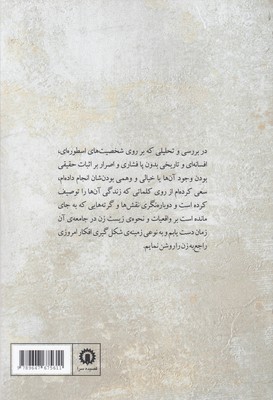 در بررسی و تحلیلی که بر روی شخصیت‌های اسطوره‌ای،
افسانه‌ای و تاریخی بدون پافشاری و اصرار بر اثبات حقیقی
بودن وجود آن‌ها یا خیالی و وهمی بودن‌شان انجام داده‌ام،
سعی کرده‌ام از روی کلماتی که زندگی آن‌ها را توصیف
کرده است و دوباره‌نگری نقش‌ها و گرته‌هایی که به جای
مانده است بر واقعیات و نحوه‌ی زیست زن در جامعه‌ی آن
زمان دست یابم و به نوعی زمینه‌ی شکل‌گیری افکار امروزی
راجع به زن را روشن نمایم.
قصیده سرا